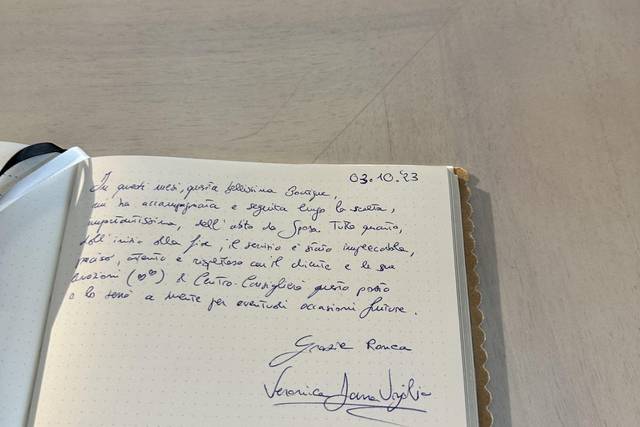 03.10.'23
In questi mesi, questa bellissima Boutique,
mi ha accompagnata e seguita lungo la scelta,
importantissima, dell'abito da Sposa. Tutto questo,
dall'inizio alla fine, il servizio è stato impeccabile,
preciso, attento e rispettoso con il cliente e le sue
emozioni (♡♡) di Centro. Consiglierò questo posto
e lo terrò a mente per eventuali occasioni future.
Grazie
Veronica Anna